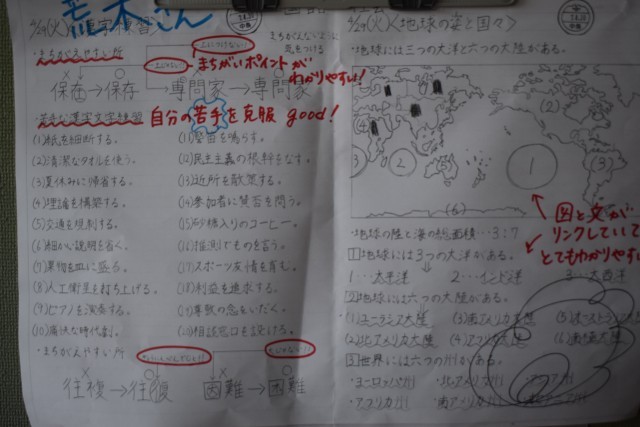 荒木さん
4/29(火)漢字練習
まちがえないように
気をつける
・まちがえやすい所
まちがいポイントが
わかりやすい!
保在→保存
専門家→専門家
・苦手な漢字文字練習
自分の苦手を克服 good!
(1)紙を細断する。
(2)清潔なタオルを使う。
(3)夏休みに帰省する。
(4)理論を構築する。
(5)交通を規制する。
(6)細かい説明を省く。
(7)果物を皿に盛る。
(8)人工衛星を打ち上げる。
(9)ピアノを演奏する。
(10)痛快な時代劇。
(11)警笛を鳴らす。
(12)民主主義の根幹をなす。
(13)近所を散策する。
(14)参加者に賛否を問う。
(15)砂糖入りのコーヒー。
(16)推測でものを言う。
(17)スポーツ友情を育む。
(18)利益を追求する。
(19)尊敬の念をいだく。
(20)相談窓口を設ける。
・まちがえやすい所
往複→往復
困難→困難
4/29(火)〈地球の姿と国々〉
・地球には三つの大洋と六つの大陸がある。
(1)
(2)
(3)
(4)
(6)
1
2
3
図と文が
リンクしていて
とてもわかりやすい
・地球の陸と海の総面積…3:7
1 地球には3つの大洋がある。
1…太平洋 2…インド洋 3…大西洋
2 地球には六つの大陸がある。
(1)ユーラシア大陸 (3)南アメリカ大陸 (5)オーストラリア大陸
(2)北アメリカ大陸 (4)アフリカ大陸 (6)南極大陸
3 世界には六つの州がある。
・ヨーロッパ州 ・北アメリカ州 ・アジア州
・アフリカ州 ・南アメリカ州 ・オセアニア州